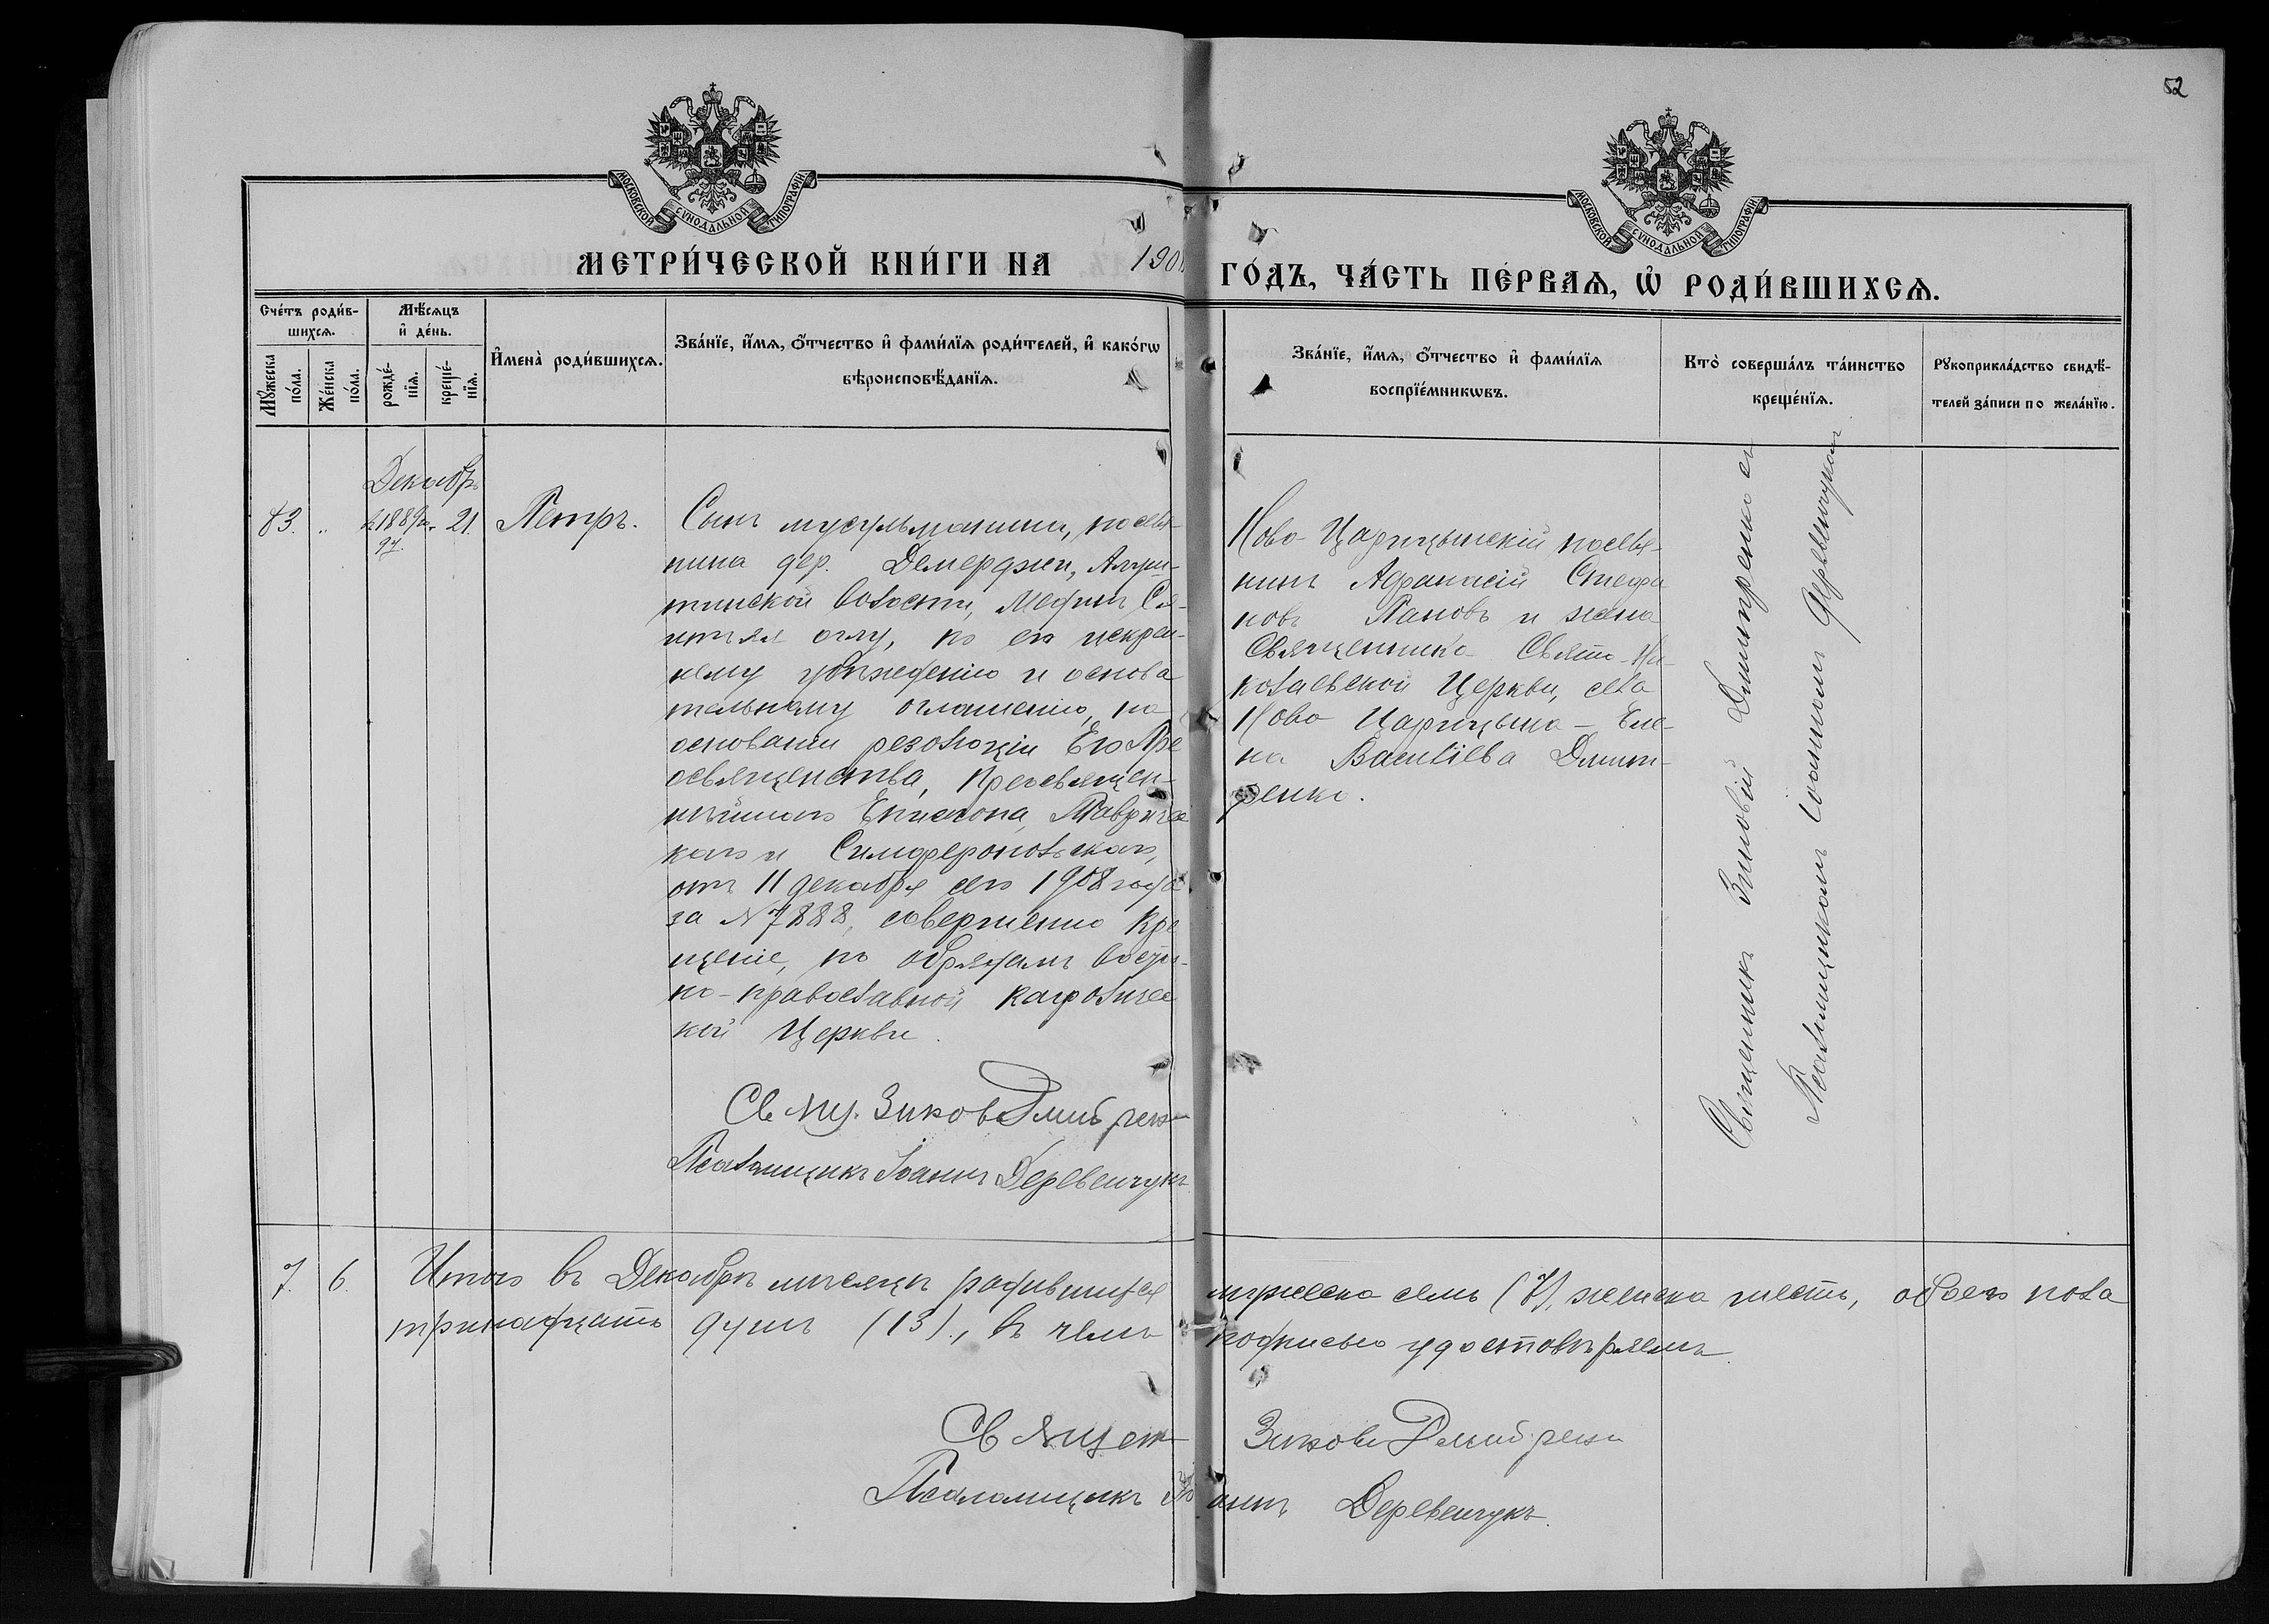 52
МОСКОВСКОЙ СУНОДАЛЬНОЙ ТИПОГРАФІИ
МОСКОВСКОЙ СУНОДАЛЬНОЙ ТИПОГРАФІИ
МЕТРИ́ЧЕСКОЙ КНИ́ГИ НА 190
ГО́ДЪ, ЧА́СТЬ ПЕ́РВАѦ, Ѡ҆ РОДИ́ВШИХСѦ.
Сче́тъ роди́в-
шихсѧ.
Мꙋ́жеска
по́ла.
Же́нска
по́ла.
Мѣ́сѧцъ
и҆ де́нь.
рожде́-
нїѧ.
креще́-
нїѧ.
И҆мена̀ роди́вшихсѧ.
Зва́нїе, и҆́мѧ, ѻ҆́тчество и҆ фами́лїѧ роди́телей, и҆ како́гѡ
вѣроисповѣ́данїѧ.
Зва́нїе, и҆́мѧ, ѻ҆́тчество и҆ фами́лїѧ
воспрїе́мникѡвъ.
Кто̀ соверша́лъ та́инство
креще́нїѧ.
Рꙋкоприкла́дство свидѣ́-
телей за́писи по жела́нїю.
Декабрь
83. „ 21. Петръ.
Сынъ мусульманина, поселя-
нина дер. Демерджи, Алуш-
тинской волости, Мефитъ Се-
оглу, по его искрен-
нему убѣжденію и основа
тельному оглашенію, на
основаніи резолюціи Его Пре
освященства, Преосвящен-
нѣйшаго Епископа, Тавриче
каго и Симферопольскаго,
отъ 11 декабря сего 1908 года
за № 7888, совершено Кре
щеніе, по обрядамъ восто-
но-православной Каѳоличес
кой Церкви.
Свящ. Зиновій Дмитренко
Псаломщикъ Іоаннъ Деревенчукъ
Ново-Царицынскій поселя-
нинъ Афанасій Стефа
новъ Пановъ и жена
Священника Свято-Ни-
колаевской Церкви, села
Ново Царицына - Еле-
на Василіева Дмит-
ренко.
Священникъ Зиновій Димитренко съ
Псаломщикомъ Іоанномъ Деревенчукомъ
7. 6. Итого въ Декабрѣ мѣсяцѣ родившихся мужеска семь (7), женска шесть, обоего пола
тринадцать душъ (13)., въ чемъ подписью удостовѣряемъ.
Священ Зиновій Дмитренко
Псаломщикъ Іоаннъ Деревенчукъ.